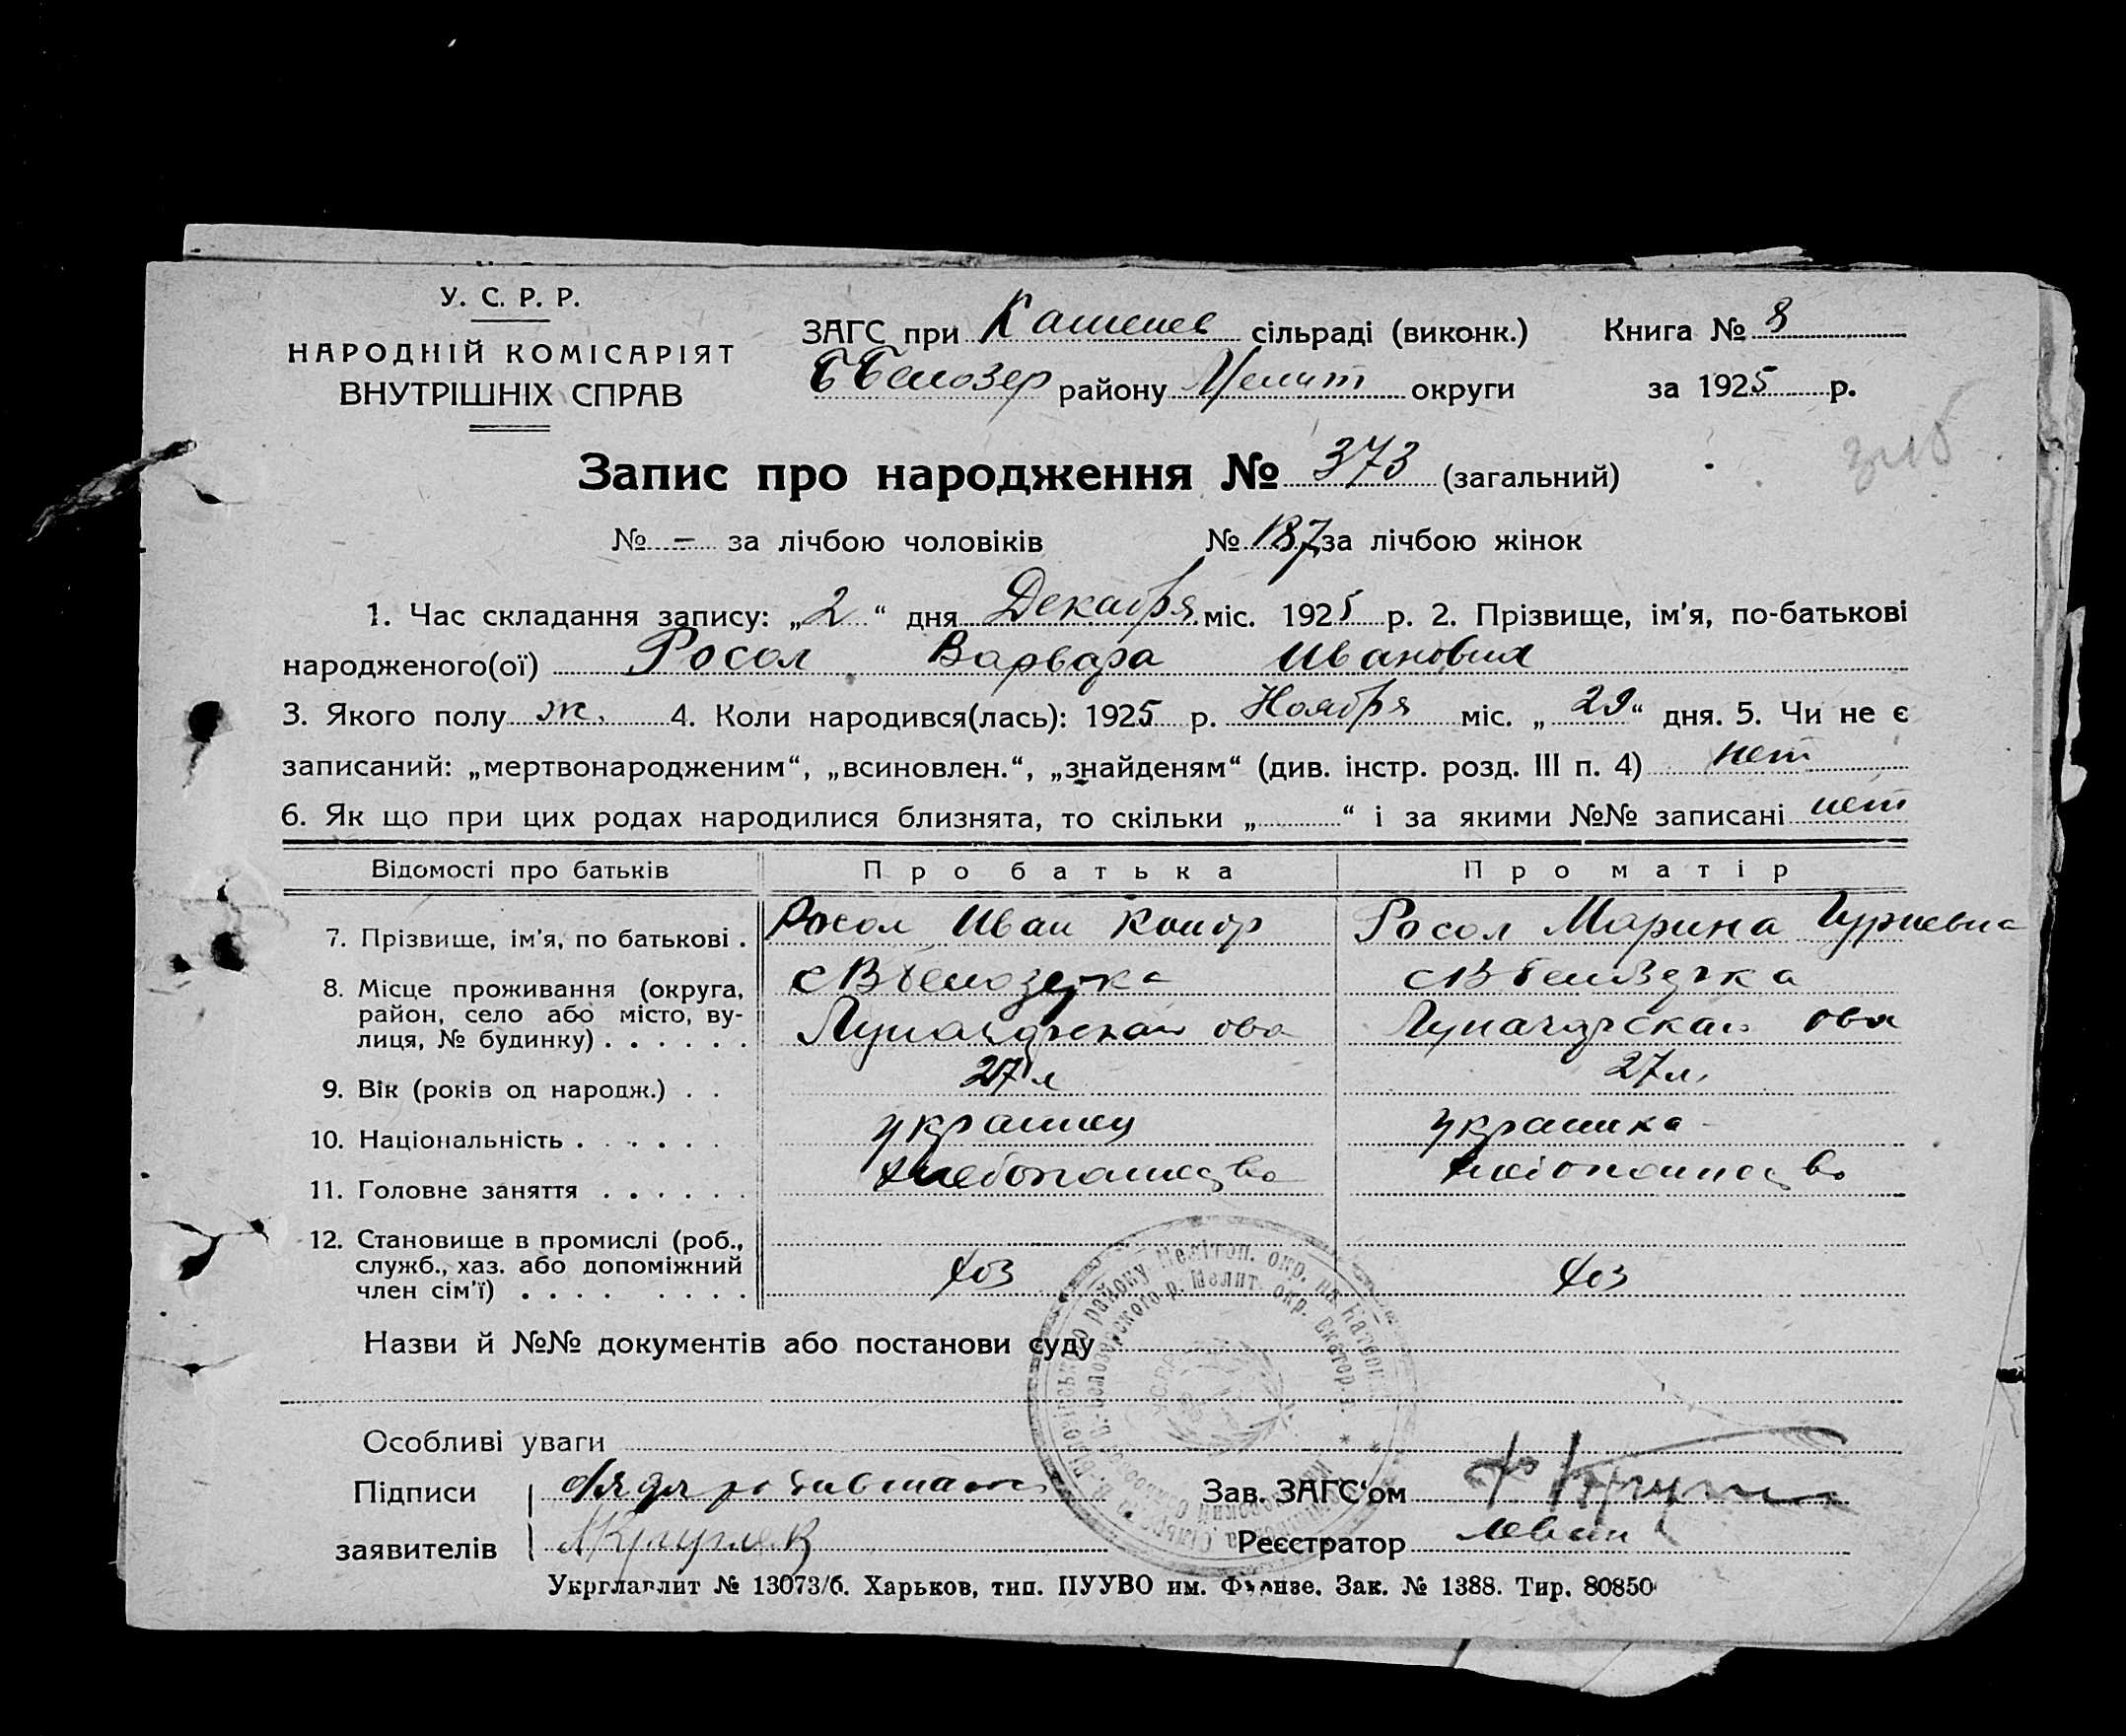 У. С. Р. Р.
НАРОДНІЙ КОМІСАРІЯТ
ВНУТРІШНІХ СПРАВ
ЗАГС при сільраді (виконк.)
Б Белозер району Мелит округи
Книга № 8
за 1925 р.
Запис про народження № 373 (загальний)
№ – за лічбою чоловіків № 187 за лічбою жінок
1. Час складання запису: „2“ дня Декабря міс. 1925 р. 2. Прізвище, ім'я, по-батькові
народженого(ої) Росол Варвара Ивановна
3. Якого полу ж. 4. Коли народився(лась): 1925 р. Ноября міс. „29“ дня. 5. Чи не є
записаний: „мертвонародженим“, „всиновлен.“, „знайденям“ (див. інстр. розд. III п. 4) нет
6. Як що при цих родах народилися близнята, то скільки „ “ і за якими №№ записані нет
Відомості про батьків Про батька Про матір
7. Прізвище, ім'я, по батькові . Росол Иван Росол Марина Гуриевна
8. Місце проживання (округа, с В Белозерка с В Белозерка
район, село або місто, ву-
лиця, № будинку) . . . . . . Луначарская Луначарская
9. Вік (років од народж.) . . 27 л 27 л.
10. Національність . . . . . . украинец украинка
11. Головне заняття . . . . . . хлебопашество хлебопашество
12. Становище в промислі (роб.,
служб., хаз. або допоміжний хоз хоз
член сім'ї) . . . . . . . .
Назви й №№ документів або постанови суду
Особливі уваги
Підписи
заявителів
Зав. ЗАГС'ом
Реєстратор
Укрглавлит № 13073/б. Харьков, тип. ПУУВО им. Фрунзе. Зак. № 1388. Тир. 80850